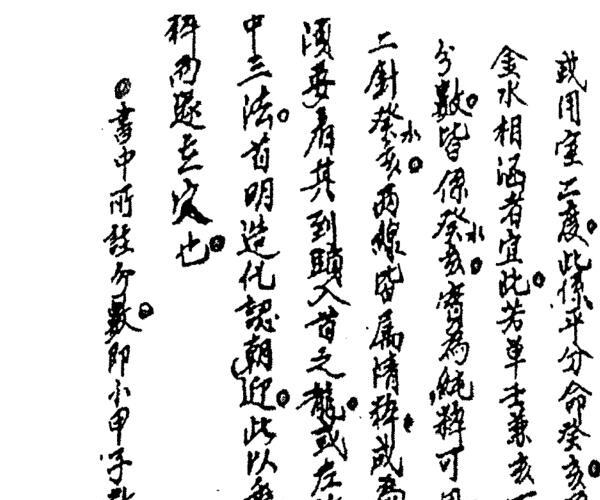 或用室二度。此係平分命癸亥。
金水相涵者宜此。若單壬兼亥
分數。皆係癸亥水。實為純粹可用
二針。癸亥水。兩線皆屬清粹。或
須要看其到頭入首之龍。或左
中三法。首明造化認朝迎。此以
粹而遂立穴也。
。書中所註分數。即小甲子